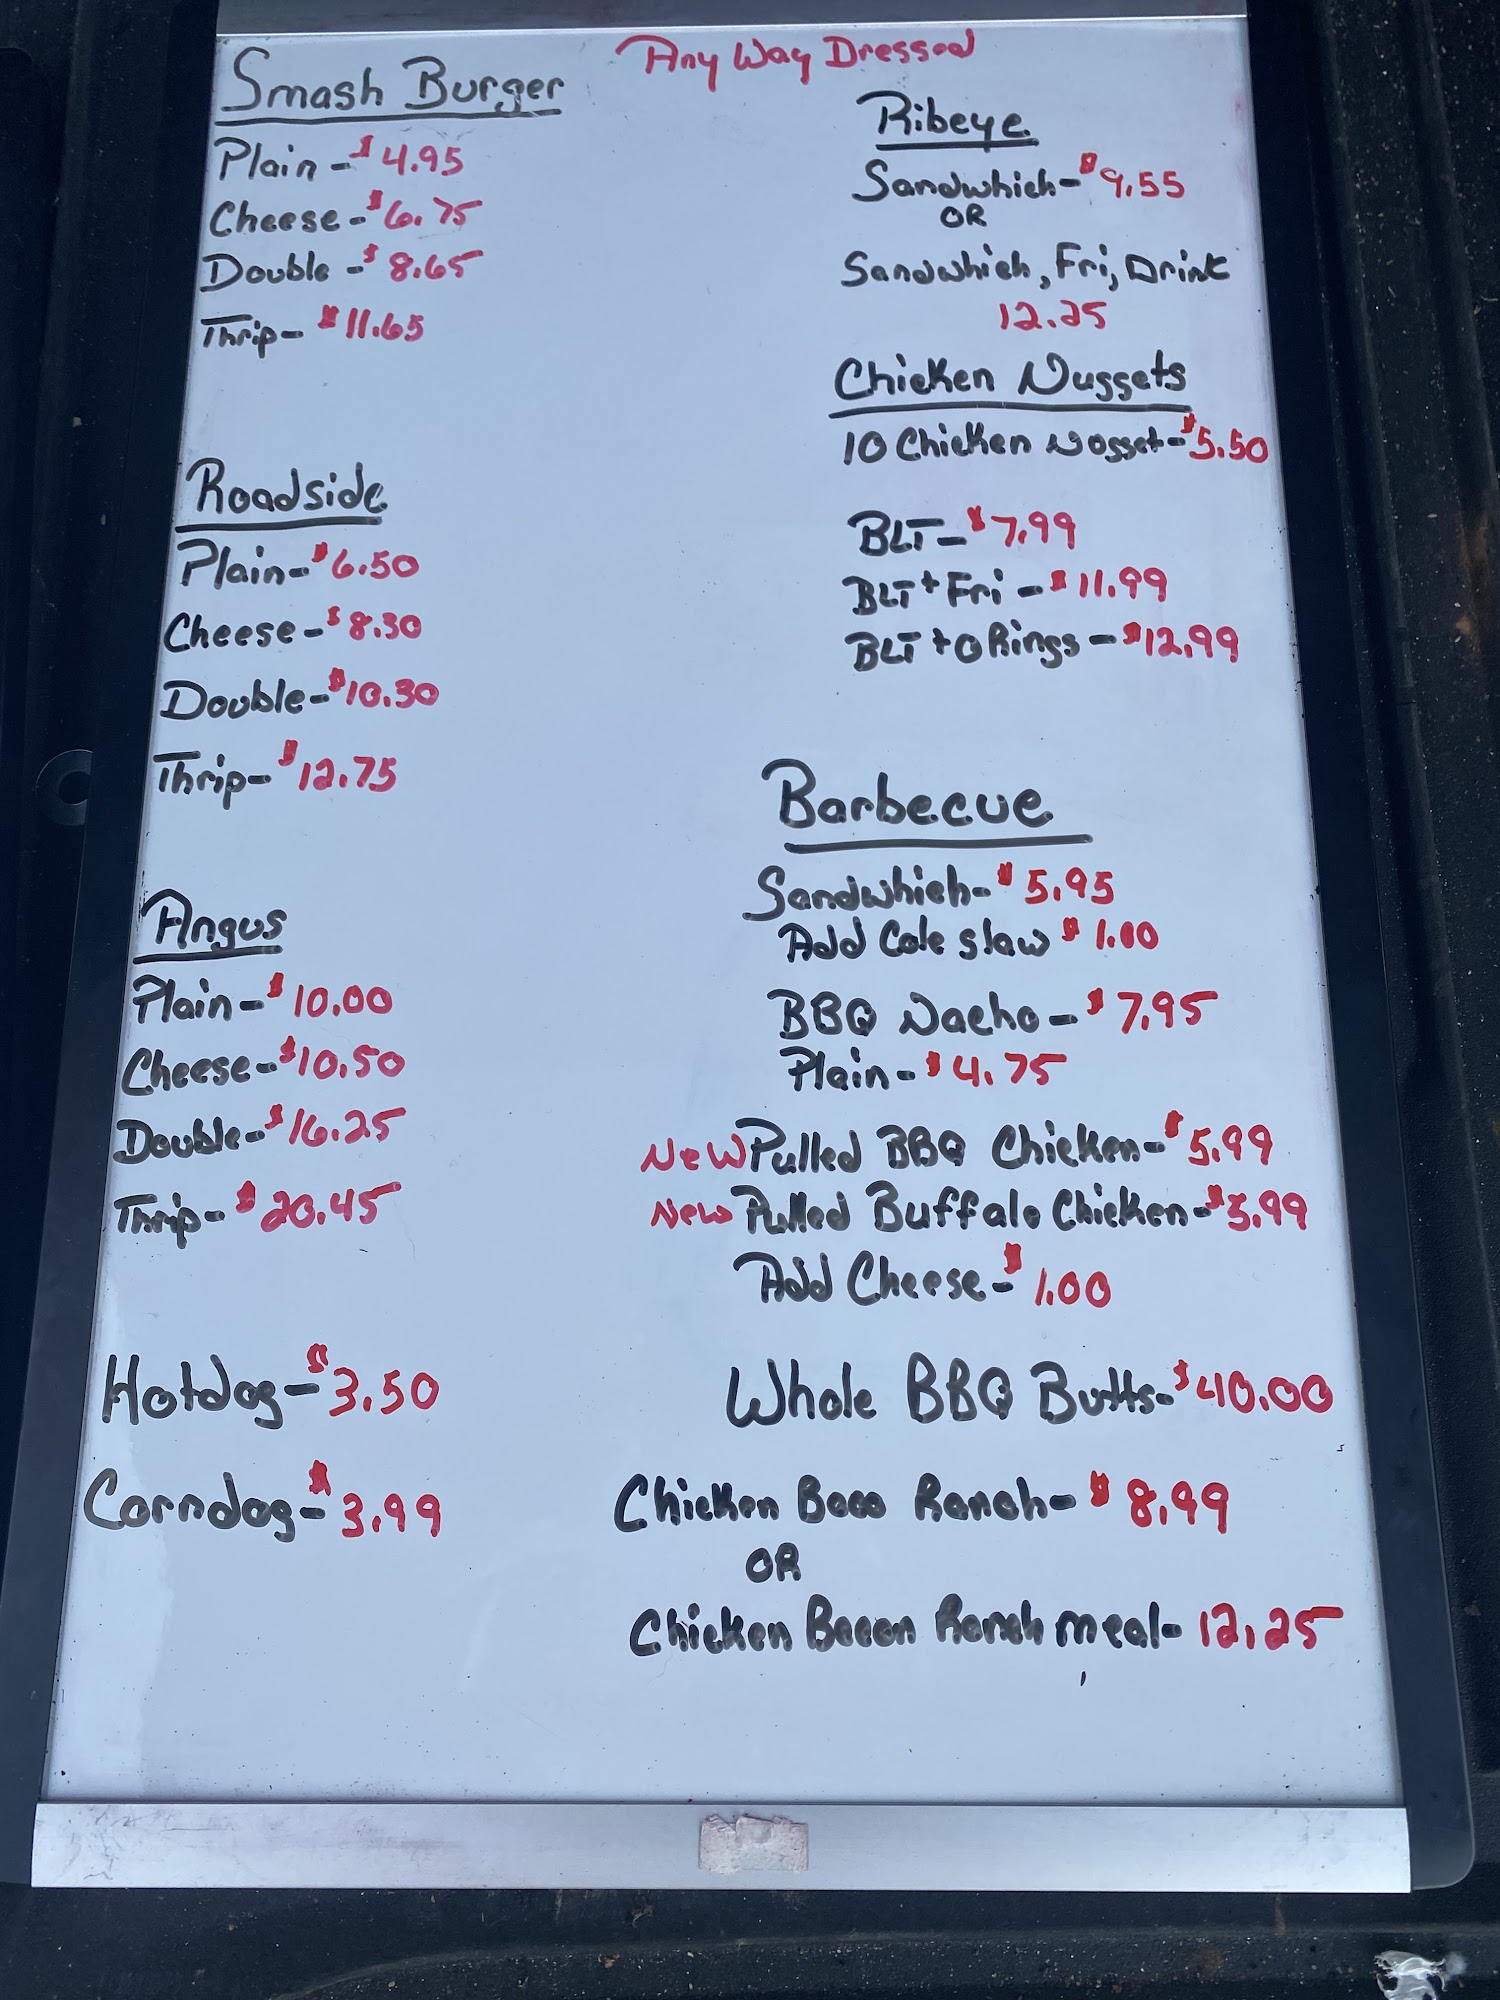 Any Way Dressed
Smash Burger
Plain - $4.95
Cheese - $6.75
Double - $8.65
Thrip - $11.65
Roadside
Plain - $6.50
Cheese - $8.30
Double - $10.30
Thrip - $12.75
Angus
Plain - $10.00
Cheese - $10.50
Double - $16.25
Thrip - $20.45
Hotdog - $3.50
Corndog - $3.99
Ribeye
Sandwhich - $9.55
OR
Sandwhich, Fri, Drink
12.25
Chicken Nuggets
10 Chicken Nogget - $5.50
BLT - $7.99
BLT + Fri - $11.99
BLT + O Rings - $12.99
Barbecue
Sandwhich - $5.95
Add Cole slaw $1.00
BBQ Nacho - $7.95
Plain - $4.75
New Pulled BBQ Chicken - $5.99
New Pulled Buffalo Chicken - $5.99
Add Cheese - $1.00
Whole BBQ Butts - $40.00
Chicken Baco Ranch - $8.99
OR
Chicken Bacon Ranch meal - 12.25